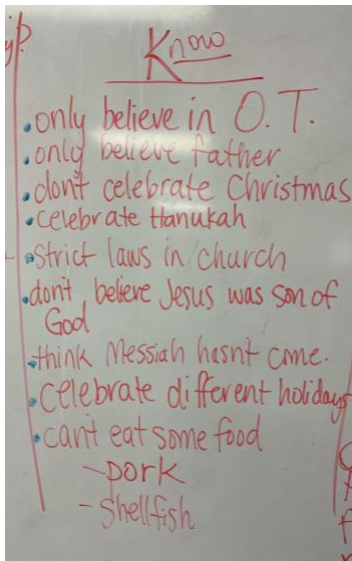 y?
Know
• only believe in O.T.
• only believe father
• dont celebrate Christmas
• celebrate Hanukah
• strict laws in church
• don't believe Jesus was son of
God
• think Messiah hasn't come.
• celebrate different holidays
• can't eat some food
- pork
- shellfish